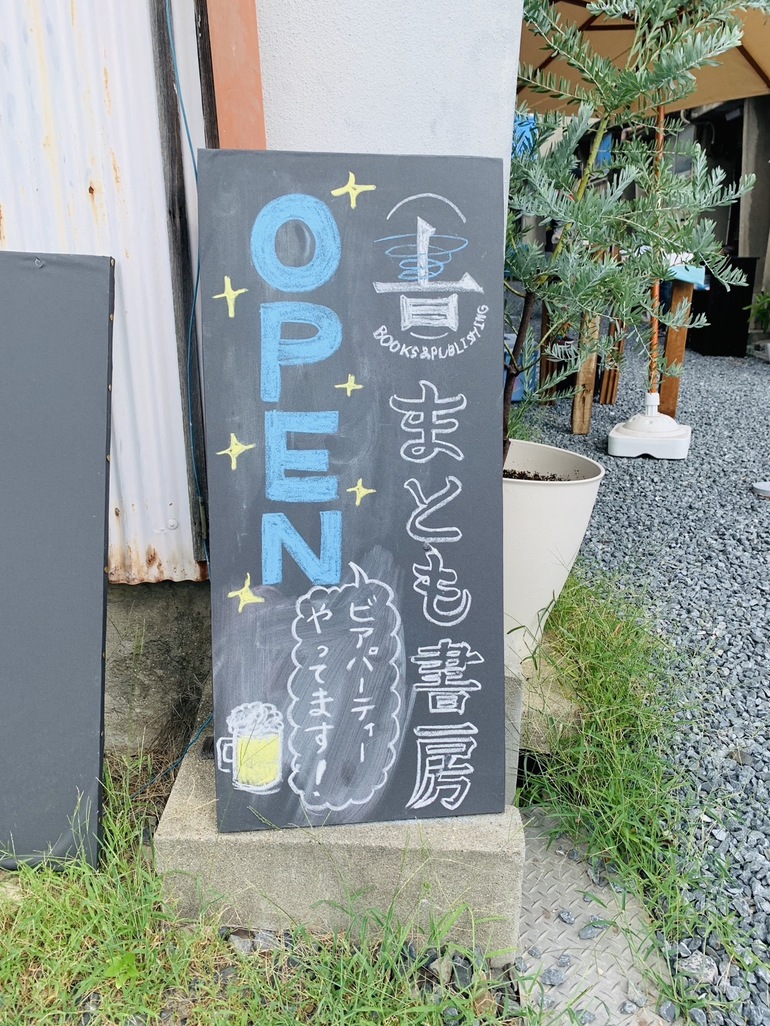 OPEN
BOOKS&PUBLISHING
まとも書房
ビアパーティー
やってます!